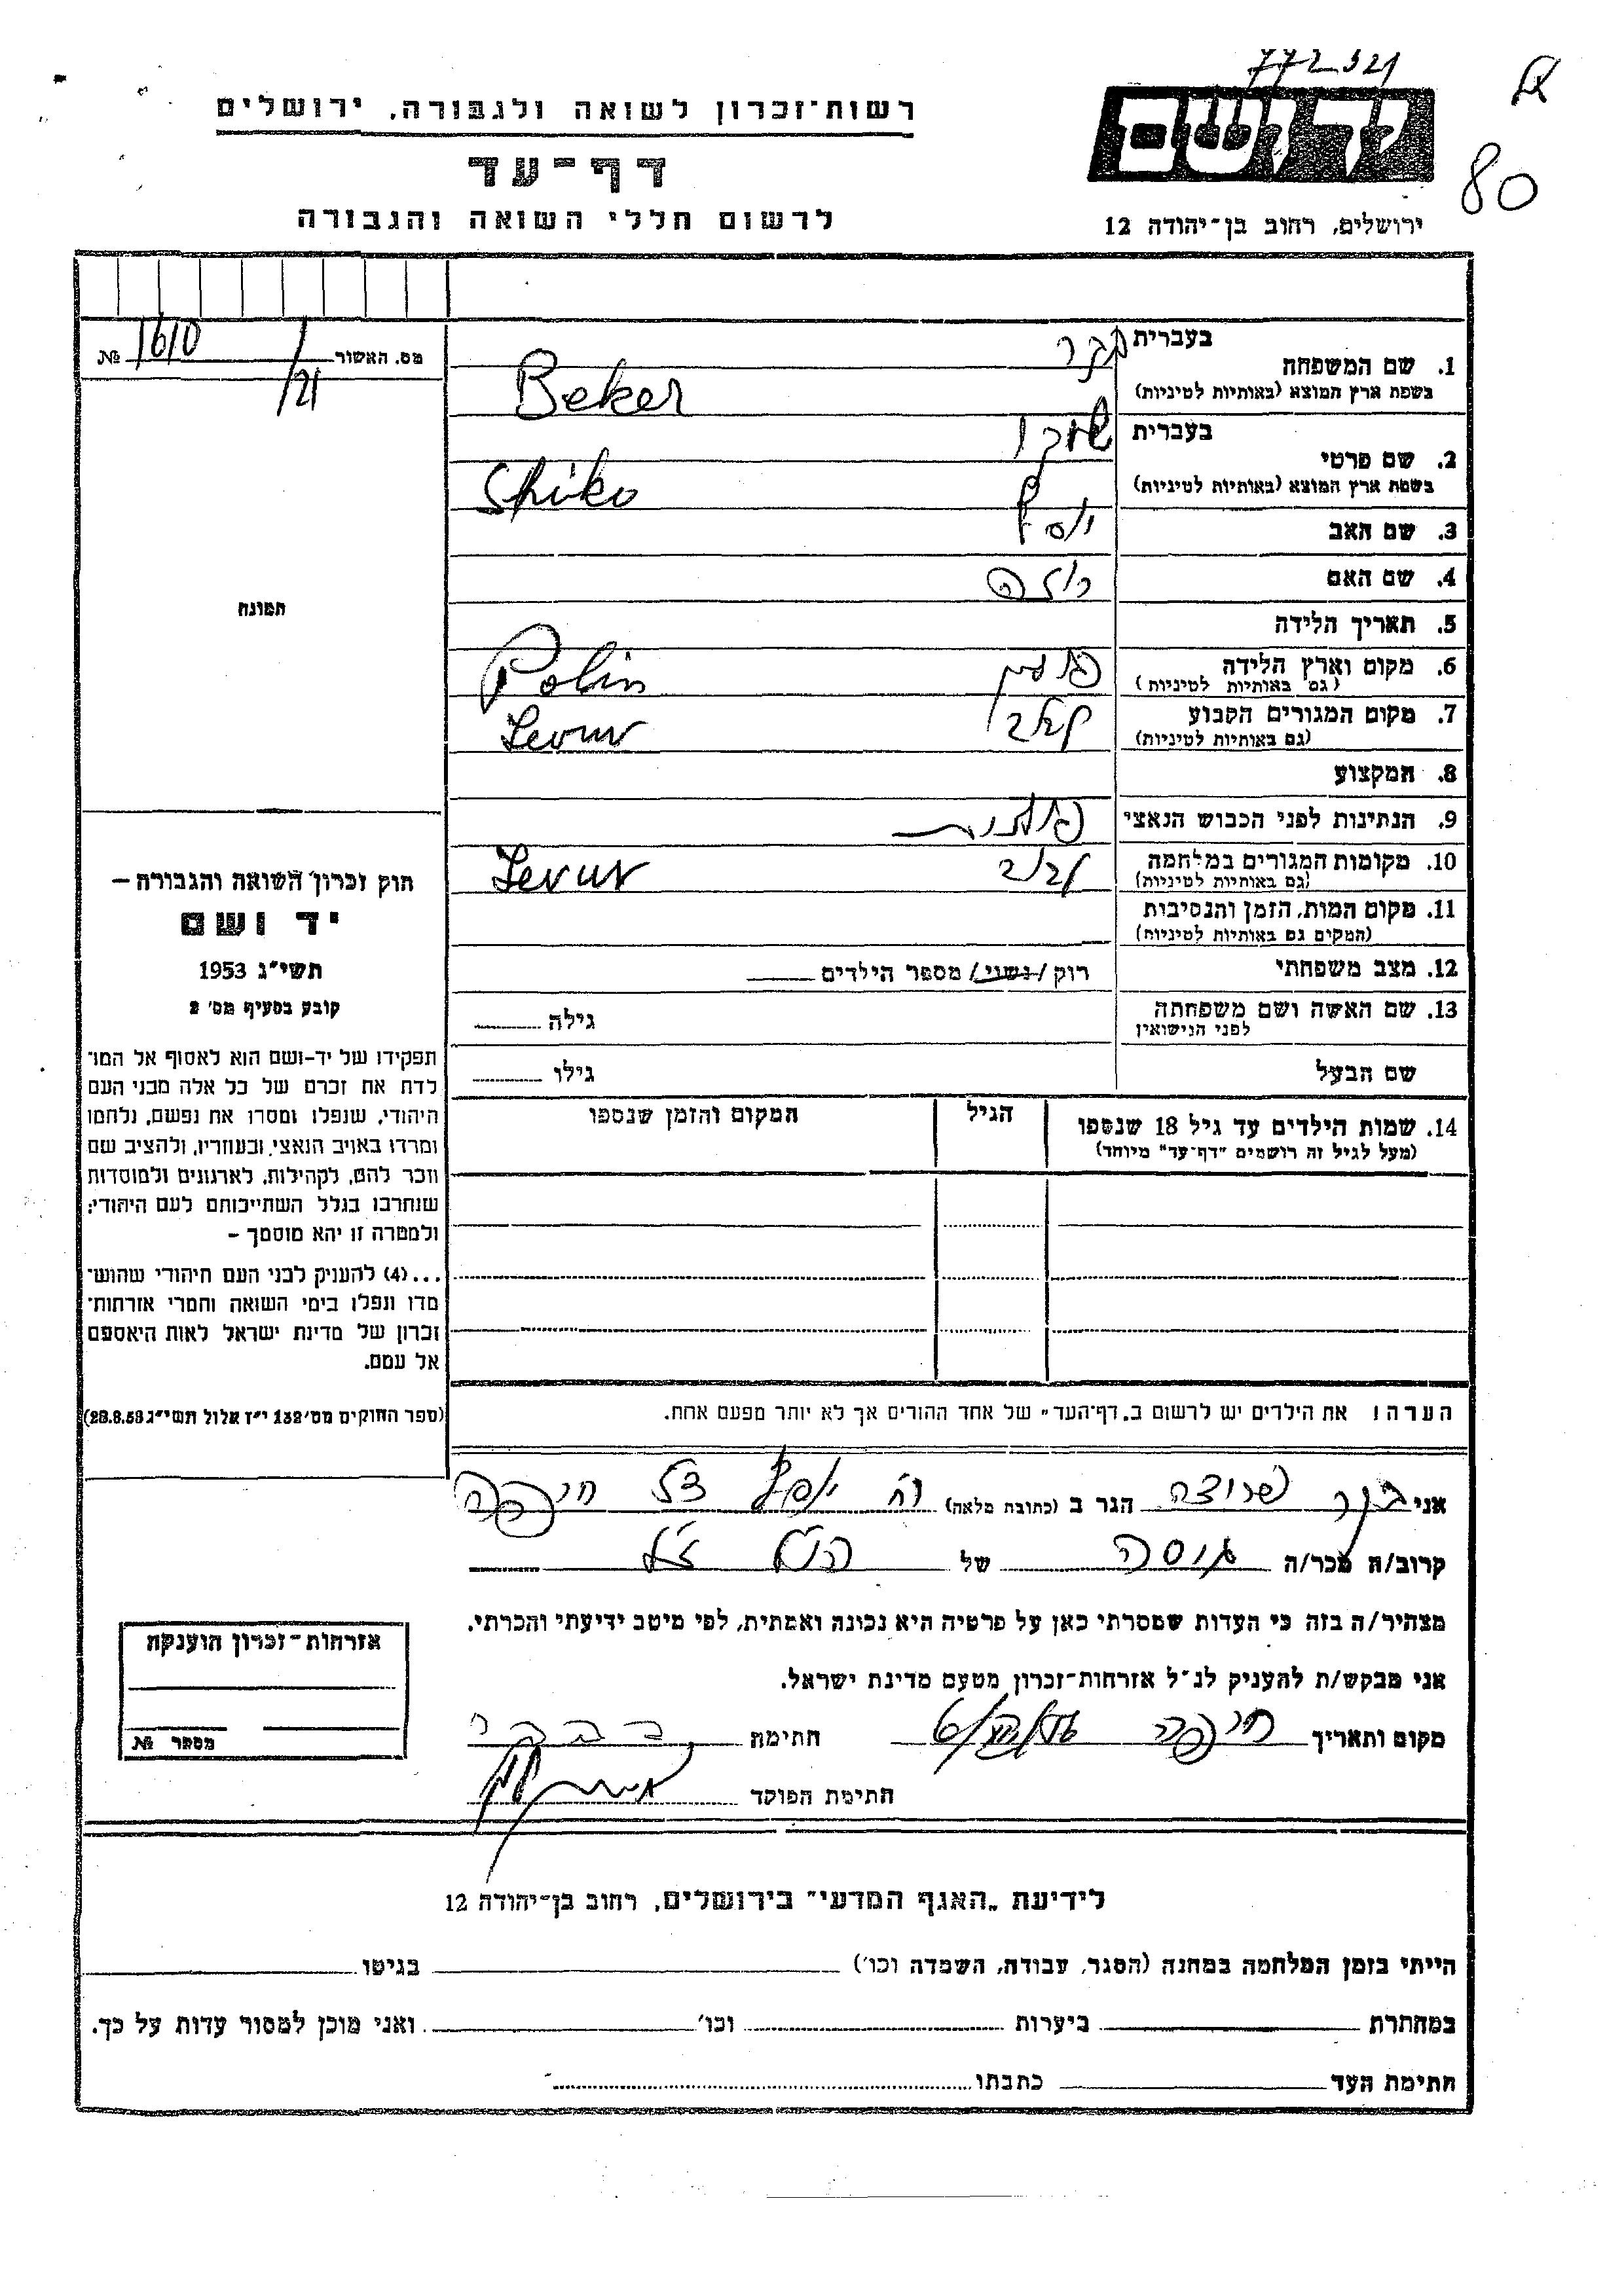 772321
80
יד ושם
ירושלים, רחוב בן־יהודה 12
רשות־זכרון לשואה ולגבורה, ירושלים
דף־עד
לרשום חללי השואה והגבורה
מס. האשור 1610/21 №
תמונה
חוק זכרון השואה והגבורה –
יד ושם
תשי״ג 1953
קובע בסעיף מס׳ 2
תפקידו של יד-ושם הוא לאסוף אל המו־
לדת את זכרם של כל אלה מבני העם
היהודי, שנפלו ומסרו את נפשם, נלחמו
ומרדו באויב הנאצי ובעוזריו, ולהציב שם
וזכר להם, לקהילות, לארגונים ולמוסדות
שנחרבו בגלל השתייכותם לעם היהודי;
ולמטרה זו יהא מוסמך –
...(4) להעניק לבני העם היהודי שהוש־
מדו ונפלו בימי השואה והמרי אזרחות־
זכרון של מדינת ישראל לאות היאספם
אל עמם.
(ספר החוקים מס׳ 132 י״ז אלול תשי״ג 28.8.53)
1. שם המשפחה בעברית בקר
בשפת ארץ המוצא (באותיות לטיניות) Beker
2. שם פרטי בעברית שיקו
בשפת ארץ המוצא (באותיות לטיניות) Shiko
3. שם האב יוסף
4. שם האם רוזה
5. תאריך הלידה
6. מקום וארץ הלידה פולין Polin
(גם באותיות לטיניות)
7. מקום המגורים הקבוע
(גם באותיות לטיניות)
8. המקצוע
9. הנתינות לפני הכבוש הנאצי פולנית
10. מקומות המגורים במלחמה
(גם באותיות לטיניות)
11. מקום המות, הזמן והנסיבות
(המקום גם באותיות לטיניות)
12. מצב משפחתי רוק / נשוי / מספר הילדים
13. שם האשה ושם משפחתה גילה
לפני הנישואין
שם הבעל גילו
14. שמות הילדים עד גיל 18 שנספו הגיל המקום והזמן שנספו
(מעל לגיל זה רושמים "דף־עד" מיוחד)
הערה! את הילדים יש לרשום ב„דף־העד״ של אחד ההורים אך לא יותר מפעם אחת.
אני בקר הגר ב (כתובת מלאה) חיפה
קרוב/ה מכר/ה גיסה של הנ״ל ז״ל
מצהיר/ה בזה כי העדות שמסרתי כאן על פרטיה היא נכונה ואמתית, לפי מיטב ידיעתי והכרתי.
אני מבקש/ת להעניק לנ״ל אזרחות־זכרון מטעם מדינת ישראל.
מקום ותאריך חיפה חתימה
חתימת הפוקד
אזרחות־זכרון הוענקה
מספר №
לידיעת „האגף המדעי״ בירושלים, רחוב בן־יהודה 12
הייתי בזמן המלחמה במחנה (הסגר, עבודה, השמדה וכו׳) בגיטו
במחתרת ביערות וכו׳ ואני מוכן למסור עדות על כך.
חתימת העד כתבתו